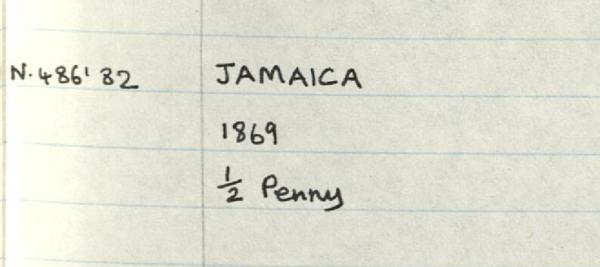 N.486'82 JAMAICA
1869
½ Penny